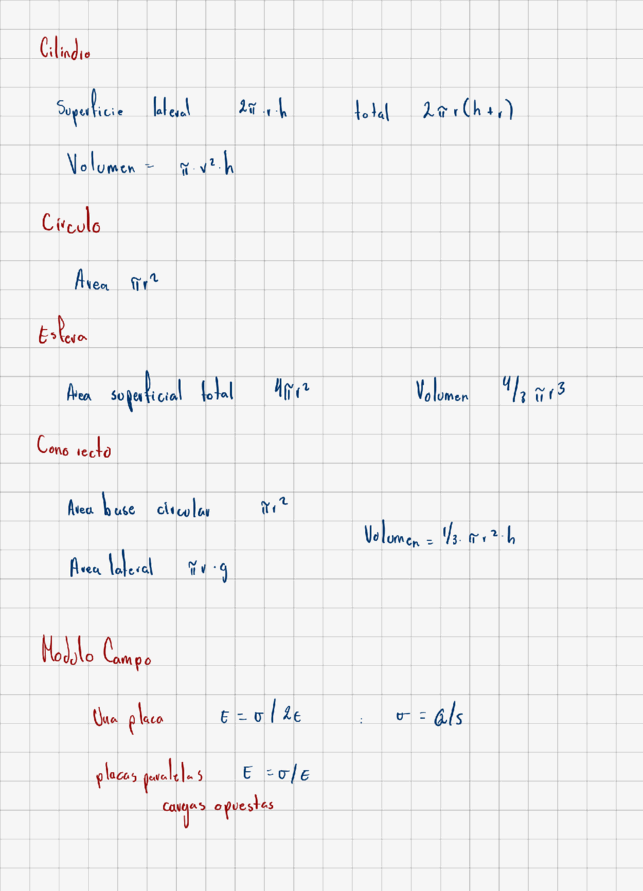 Cilindro
Superficie lateral 2π·r·h total 2πr(h+r)
Volumen = π·r²·h
Círculo
Area πr²
Esfera
Area superficial total 4πr² Volumen 4/3 πr³
Cono recto
Area base circular πr²
Volumen = 1/3·πr²·h
Area lateral πr·g
Modulo Campo
Una placa E = σ/2ε : σ = Q/s
placas paralelas E = σ/ε
cargas opuestas